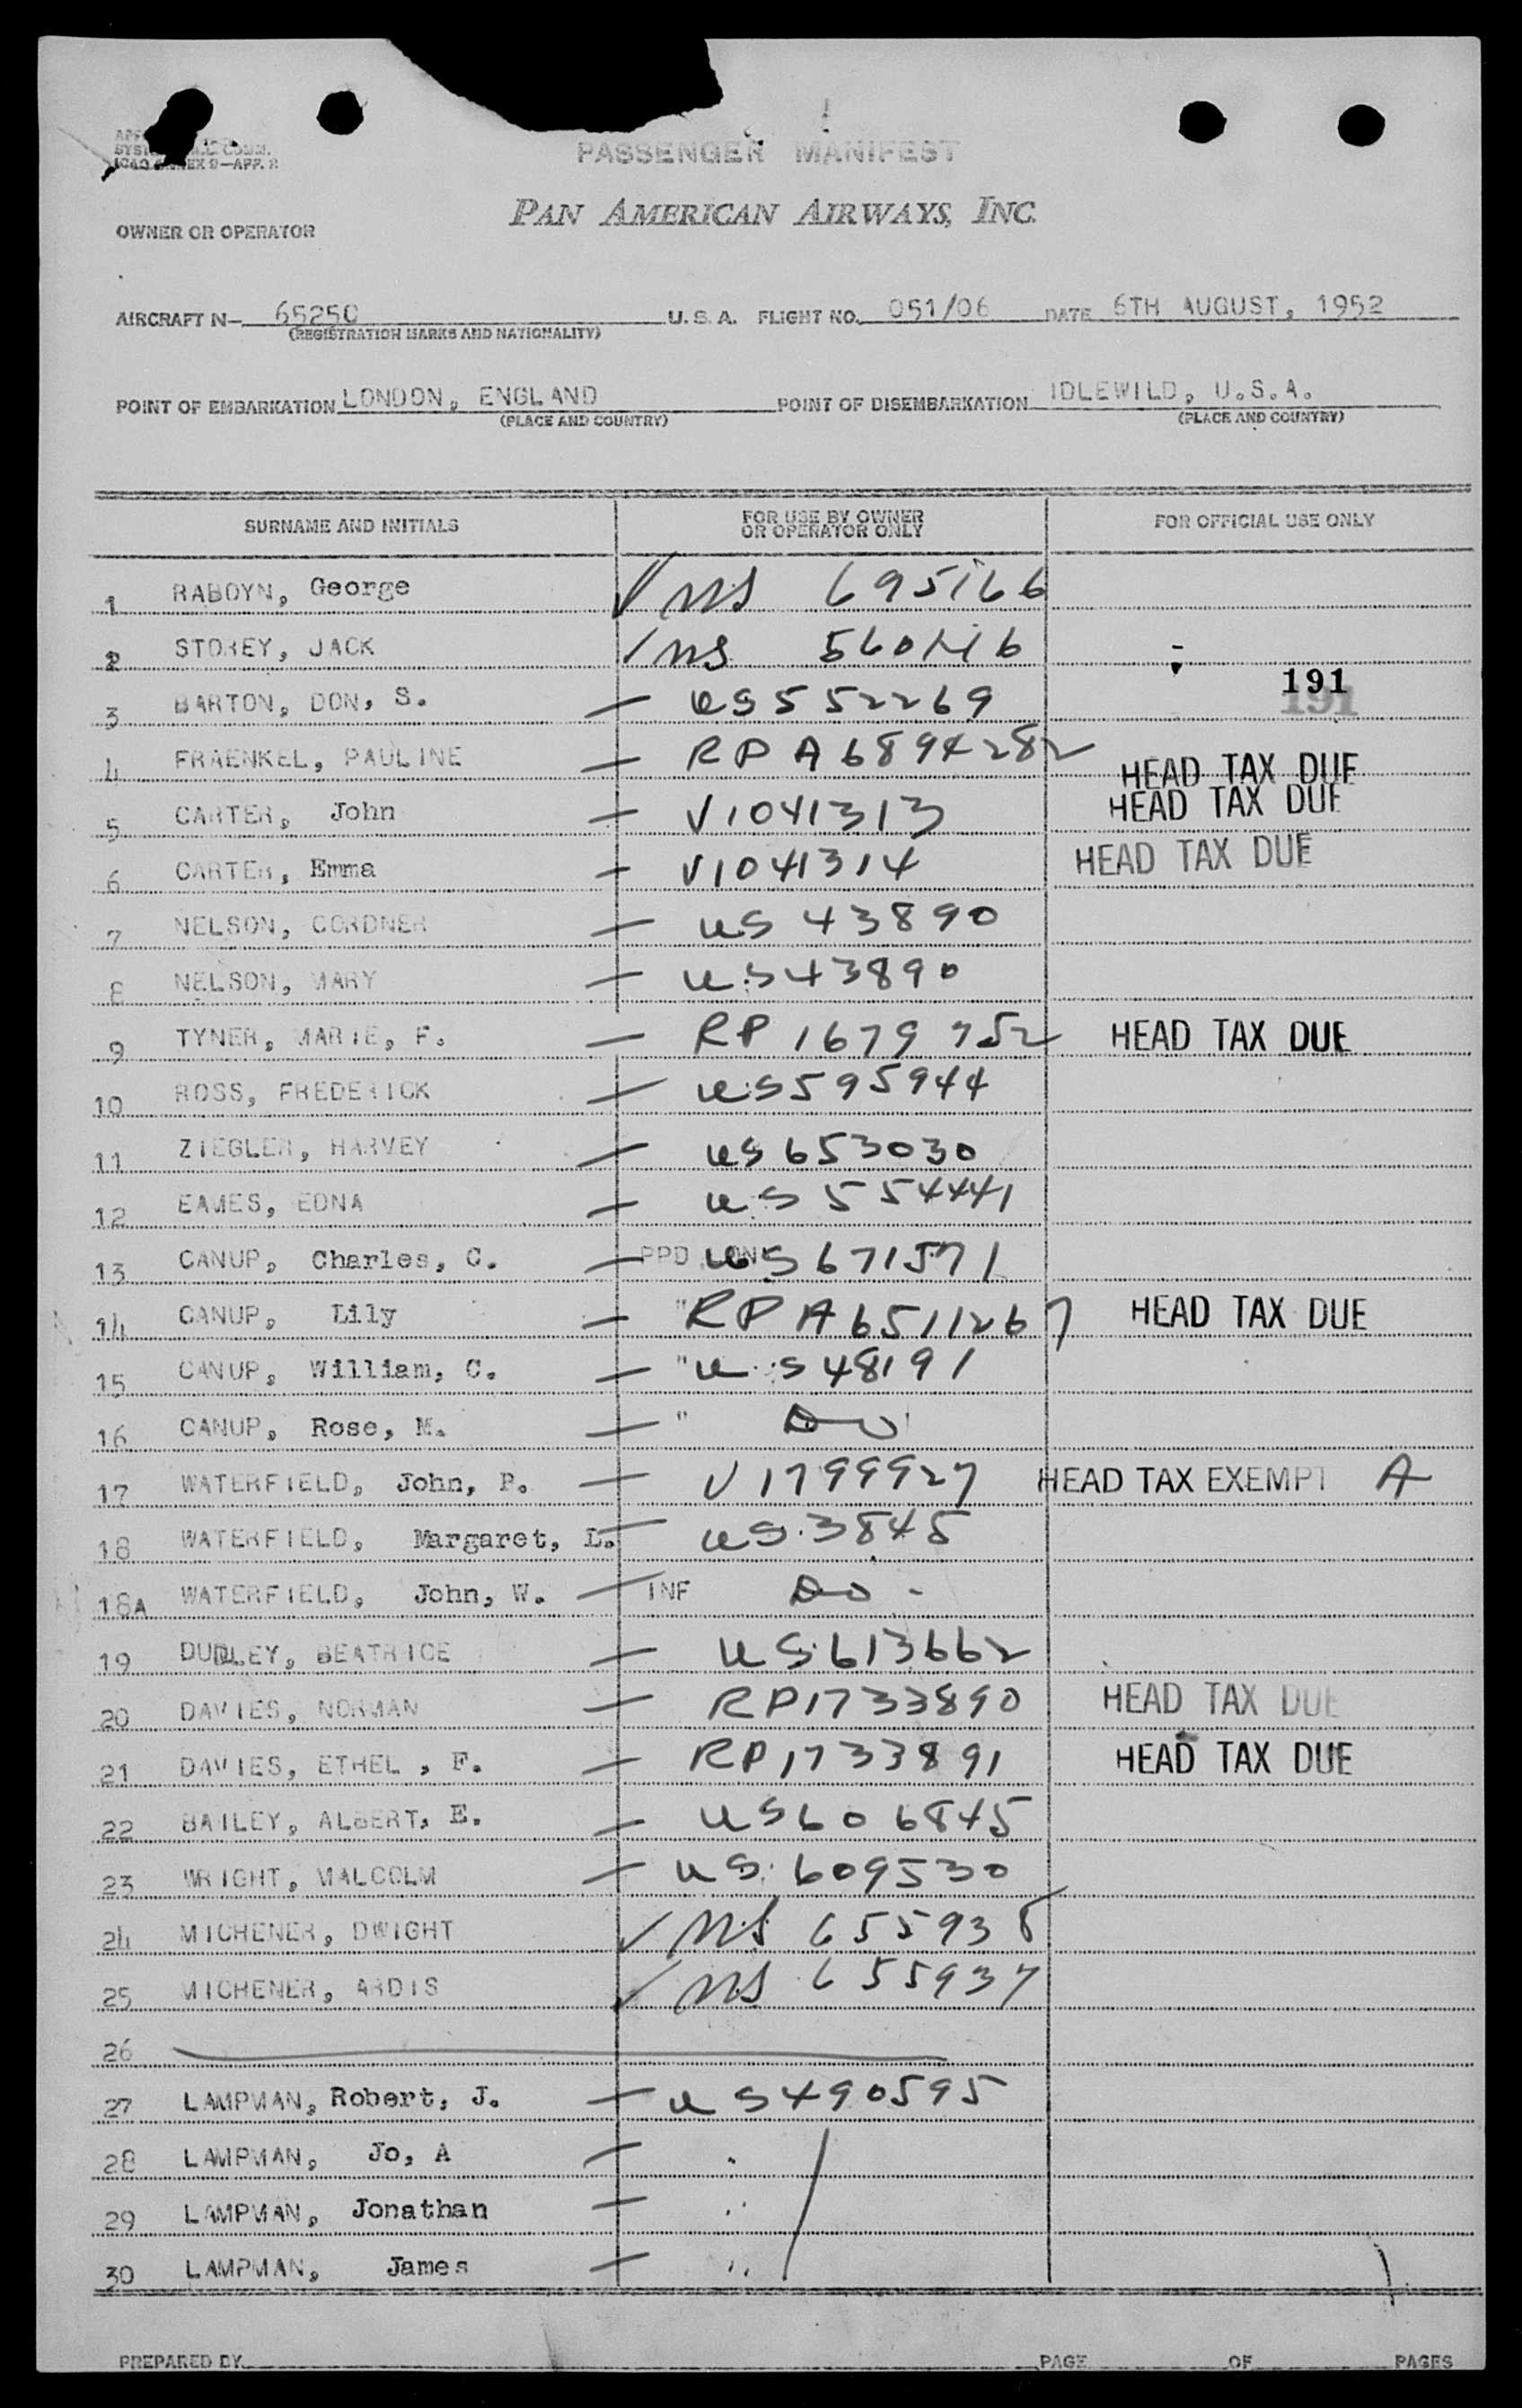 PASSENGER MANIFEST
ICAO ANNEX 9—APP. 2
PAN AMERICAN AIRWAYS, INC.
OWNER OR OPERATOR
AIRCRAFT N— 65250 U. S. A. FLIGHT NO. 051/06 DATE 6TH AUGUST, 1952
(REGISTRATION MARKS AND NATIONALITY)
POINT OF EMBARKATION LONDON, ENGLAND POINT OF DISEMBARKATION IDLEWILD, U.S.A.
(PLACE AND COUNTRY) (PLACE AND COUNTRY)
SURNAME AND INITIALS FOR USE BY OWNER OR OPERATOR ONLY FOR OFFICIAL USE ONLY
1 RABOYN, George ✓ US 695166
2 STOREY, JACK ✓ US
191
191
3 BARTON, DON, S. — US 552269
4 FRAENKEL, PAULINE — RP A6894282 HEAD TAX DUE
5 CARTER, John — V1041313 HEAD TAX DUE
6 CARTER, Emma — V1041314 HEAD TAX DUE
7 NELSON, CORDNER — US 43890
8 NELSON, MARY — US 43890
9 TYNER, MARIE, F. — RP 1679752 HEAD TAX DUE
10 ROSS, FREDERICK — US 595944
11 ZIEGLER, HARVEY — US 653030
12 EAMES, EDNA — US 554441
13 CANUP, Charles, C. — PPD LON US 671571
14 CANUP, Lily — " RP A6511267 HEAD TAX DUE
15 CANUP, William, C. — " US 48191
16 CANUP, Rose, M. — " Do
17 WATERFIELD, John, P. — V1799927 HEAD TAX EXEMPT A
18 WATERFIELD, Margaret, L. — US 3845
18A WATERFIELD, John, W. — INF Do -
19 DUDLEY, BEATRICE — US 613662
20 DAVIES, NORMAN — RP1733890 HEAD TAX DUE
21 DAVIES, ETHEL, F. — RP1733891 HEAD TAX DUE
22 BAILEY, ALBERT, E. — US 606845
23 WRIGHT, MALCOLM — US 609530
24 MICHENER, DWIGHT ✓ US 655938
25 MICHENER, ARDIS ✓ US 655937
26
27 LAMPMAN, Robert, J. — US 490595
28 LAMPMAN, Jo, A — "
29 LAMPMAN, Jonathan — "
30 LAMPMAN, James — "
PREPARED BY PAGE OF PAGES